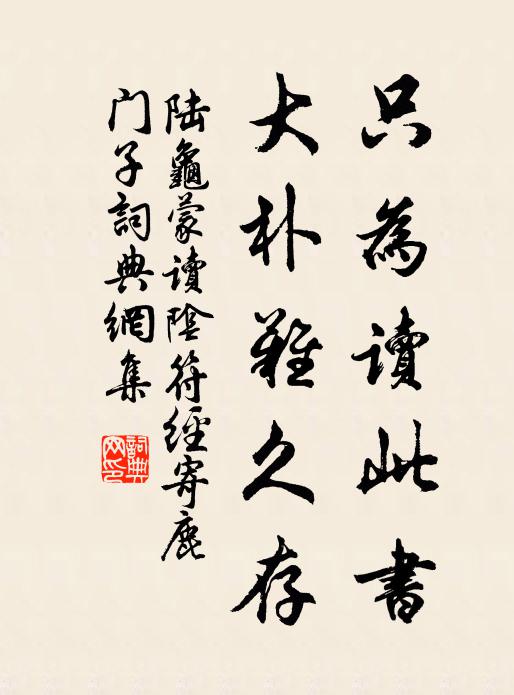 只為讀此書
大朴難久存
陸龜蒙讀陰符經寄鹿
门子詞典網集
詞典网印